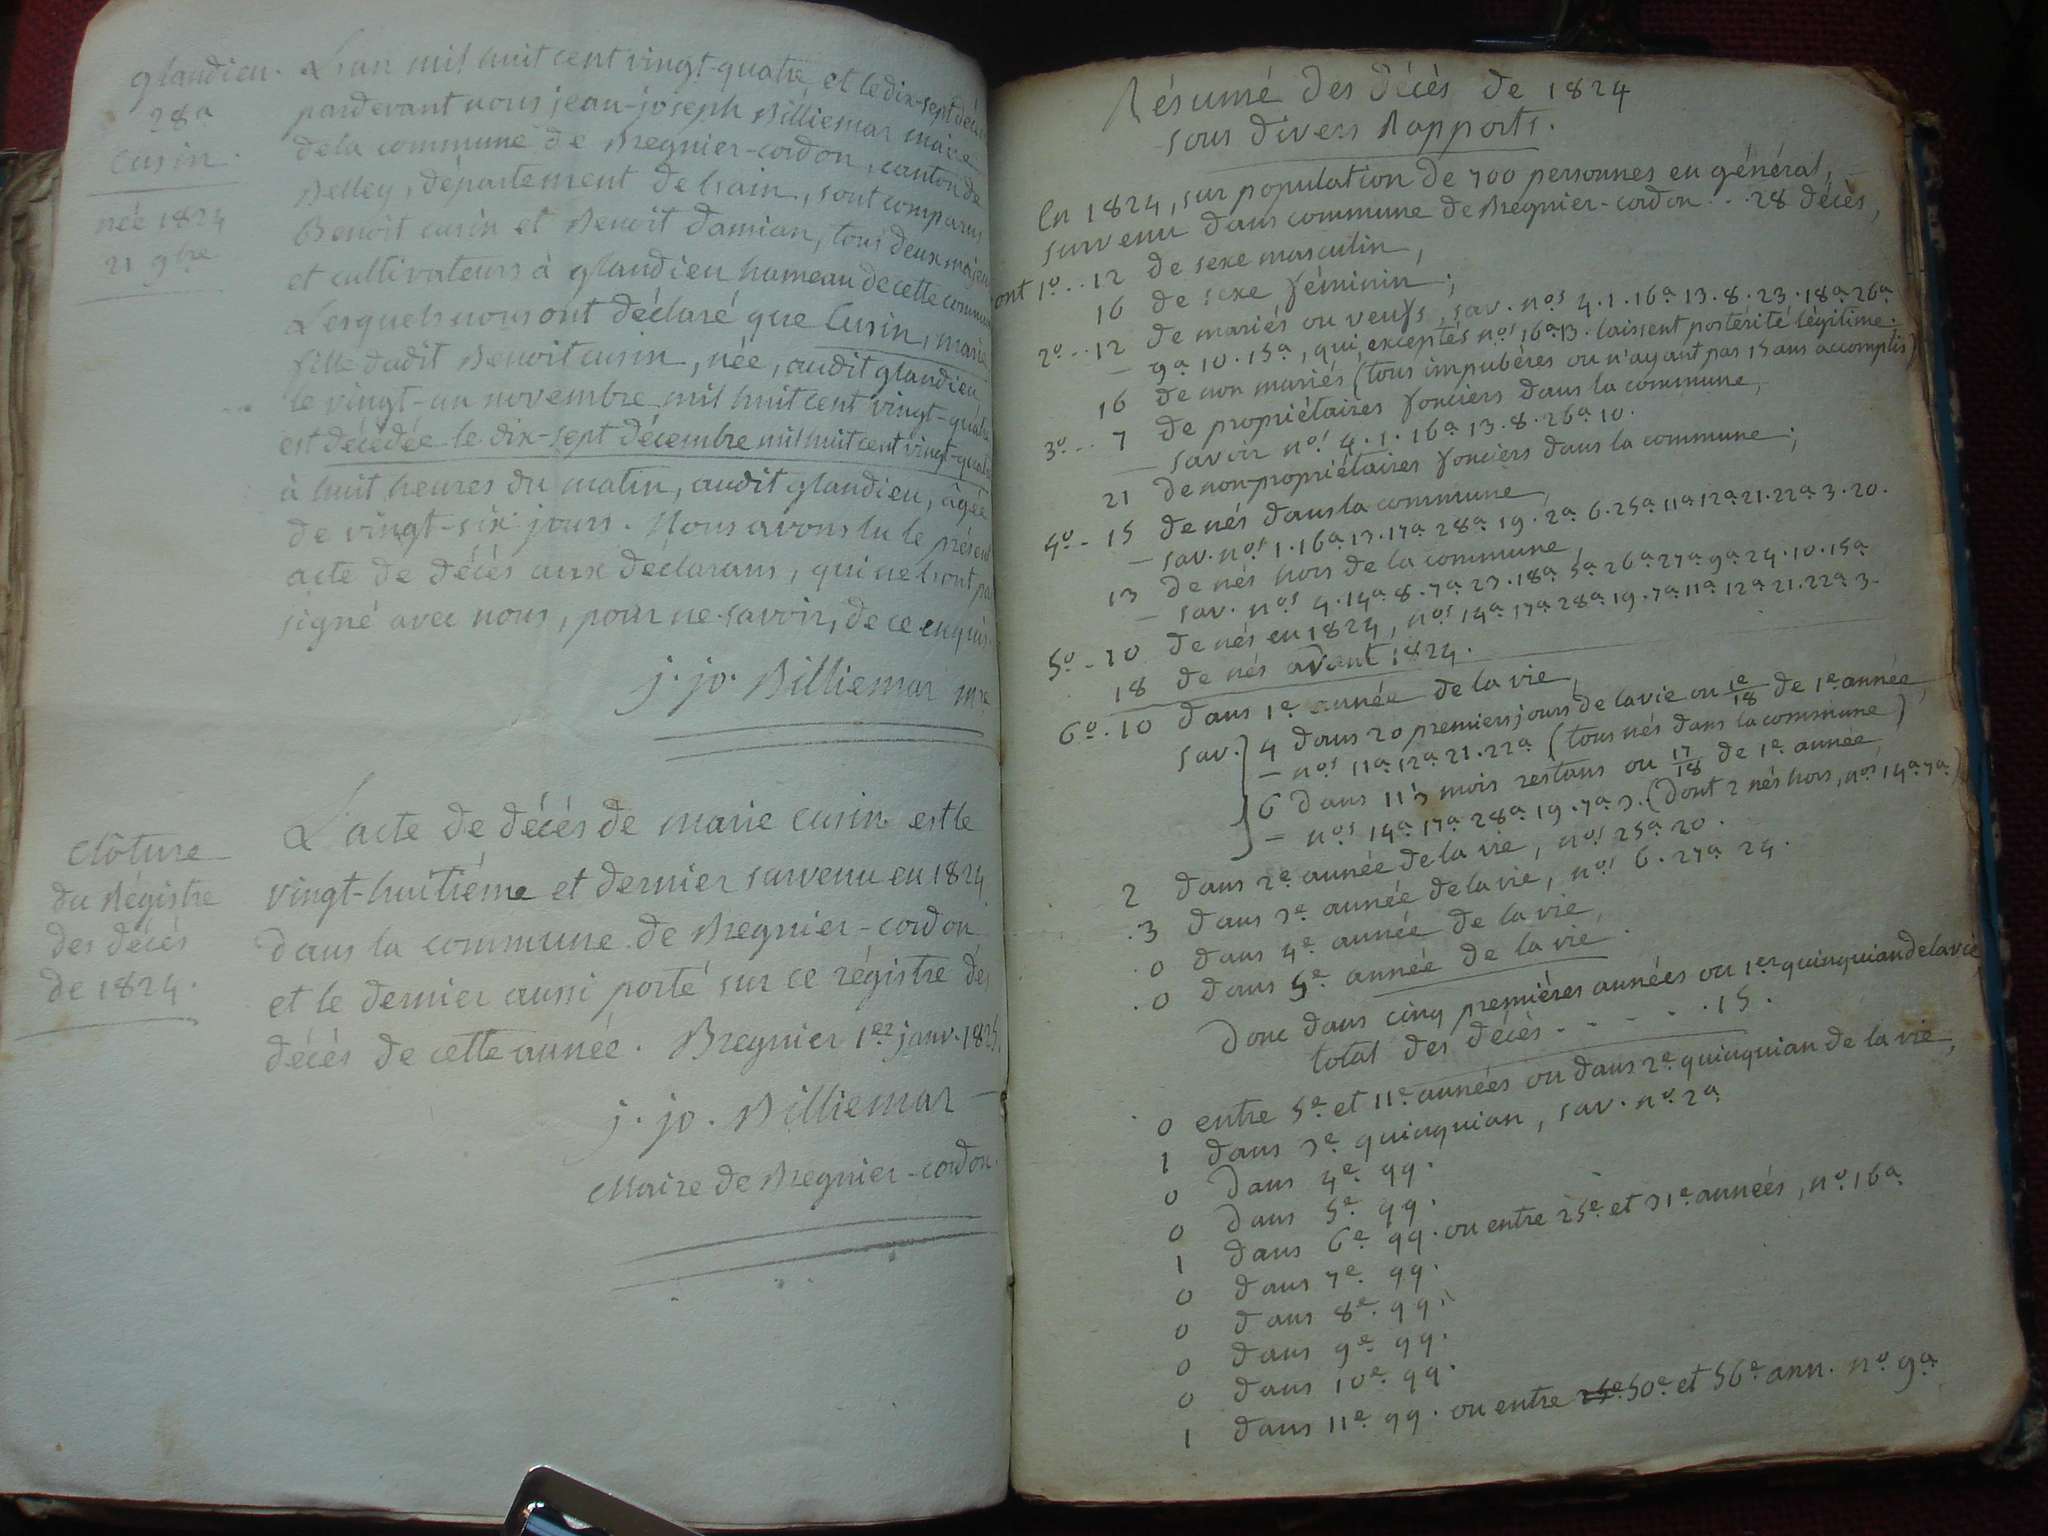 glandieu.
28a
Cusin.
née 1824
21 9bre
L'an mil huit cent vingt-quatre, et le dix-sept déc
pardevant nous jean-joseph Billiemaz maire
de la commune de Bregnier-cordon, canton de
Belley, département de l'ain, sont comparus
Benoit cusin et Benoit Damian, tous deux majeurs
et cultivateurs à glandieu hameau de cette commune
Lesquels nous ont déclaré que Cusin, marie
fille dudit Benoit cusin, née, audit glandieu
le vingt-un novembre mil huit cent vingt-quatre
est décédée le dix-sept décembre mil huit cent vingt-quatre
à huit heures du matin, audit glandieu, âgée
de vingt-six jours. Nous avons lu le présent
acte de décès aux déclarans, qui ne l'ont pas
signé avec nous, pour ne savoir, de ce enquis.
j. jo. Billiemaz mre
Clôture
du Régistre
des décès
de 1824.
L'acte de décès de marie cusin est le
vingt-huitiéme et dernier survenu en 1824
dans la commune de Bregnier-cordon
et le dernier aussi porté sur ce régistre des
décès de cette année. Bregnier 1er janv. 1825.
j. jo. Billiemaz
Maire de Bregnier-cordon.
Résumé des décès de 1824
sous divers Rapports.
En 1824, sur population de 700 personnes en général,
survenu dans commune de Bregnier-cordon... 28 décès,
ont 1o.. 12 de sexe masculin,
16 de sexe féminin;
2o.. 12 de mariés ou veufs, sav. nos 4.1.16a 13.8.23.18a 26a
— 9a 10.15a, qui, exceptés nos 16a 13. laissent postérité légitime.
16 de non mariés (tous impubères ou n'ayant pas 15 ans accomplis)
3o.. 7 de propriétaires fonciers dans la commune,
— savoir nos 4.1.16a 13.8.26a 10.
21 de non propriétaires fonciers dans la commune;
4o.. 15 de nés dans la commune,
— sav. nos 1.16a 13.17a 28a 19.2a 6.25a 11a 12a 21.22a 3.20.
13 de nés hors de la commune,
— sav. nos 4.14a 8.7a 23.18a 5a 26a 27a 9a 24.10.15a
5o.. 10 de nés en 1824, nos 14a 17a 28a 19.7a 11a 12a 21.22a 3.
18 de nés avant 1824.
6o. 10 dans 1e année de la vie,
sav. 4 dans 20 premiers jours de la vie ou 1e/18 de 1e année,
— nos 11a 12a 21.22a (tous nés dans la commune)
6 dans 11 mois restans ou 17/18 de 1e année,
— nos 14a 17a 28a 19.7a 3. (dont 2 nés hors, nos 14a 7a)
2 dans 2e année de la vie, nos 25a 20.
.3 dans 3e année de la vie, nos 6.27a 24.
.0 dans 4e année de la vie,
.0 dans 5e année de la vie.
Donc dans cinq premiéres années ou 1er quinquian de la vie
total des décès.....15.
0 entre 5e et 11e années ou dans 2e quinquian de la vie,
1 dans 3e quinquian, sav. no 2a
0 dans 4e qq.
0 dans 5e qq.
1 dans 6e qq. ou entre 25e et 31e années, no 16a
0 dans 7e qq.
0 dans 8e qq.
0 dans 9e qq.
0 dans 10e qq.
1 dans 11e qq. ou entre 50e et 56e ann. no 9a